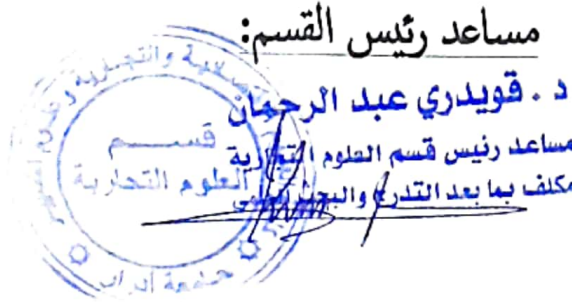 مساعد رئيس القسم:
د . قويدري عبد الرحمان
مساعد رئيس قسم العلوم التجارية
مكلف بما بعد التدرج والبحث العلمي
قســـــم
العلوم التجارية
جامعة أدرار